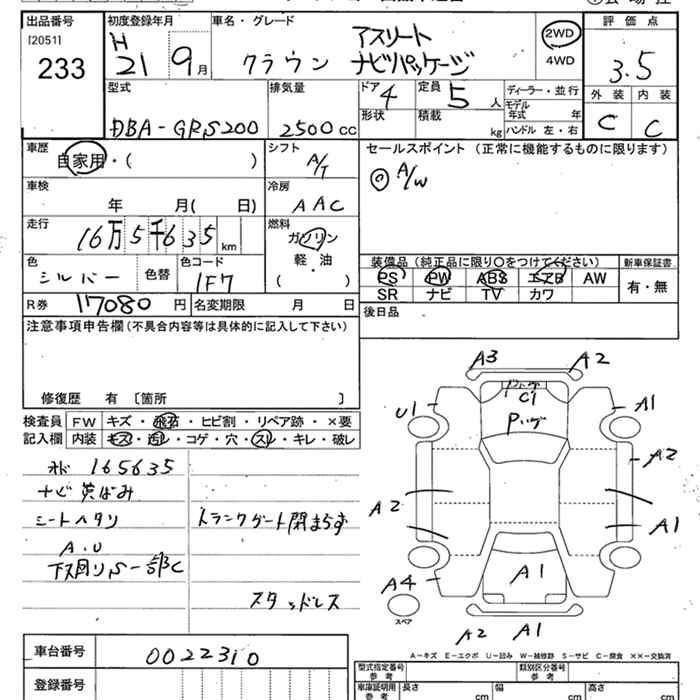 出品番号
[2051]
233
初度登録年月
H
21 9月
車名・グレード
クラウン
アスリート
ナビパッケージ
2WD
4WD
評価点
3.5
外装 内装
C C
型式
DBA-GRS200
排気量
2500cc
ドア
4
形状
定員
5人
積載
kg
ディーラー・並行
モデル
年式 年
ハンドル 左・右
車歴
自家用・( )
シフト
A/T
セールスポイント (正常に機能するものに限ります)
◎ A/W
車検
年 月( 日)
冷房
AAC
走行
16万5千635km
燃料
ガソリン
軽・油
( )
色
シルバー
色替
色コード
1F7
装備品 (純正品に限り〇をつけてください)
新車保証書
PS PW ABS エアB AW
SR ナビ TV カワ
有・無
R券 17080円
名変期限 月 日
後日品
注意事項申告欄(不具合内容等は具体的に記入して下さい)
修復歴 有 〔箇所 〕
検査員
記入欄
FW キズ・飛石・ヒビ割・リペア跡・×要
内装 キズ・汚レ・コゲ・穴・スレ・キレ・破レ
165635
ナビ黄ばみ
シートヘタリ
A.U
下回りS一部C
トランクゲート閉まらず
スタッドレス
A3 A2
C1
U1
A1
A2
A2
A1
A4
A1
スペア
A2 A1
A-キズ E-エクボ U-凹み W-補修跡 S-サビ C-腐食 ××-交換済
車台番号
0022310
登録番号
型式指定番号
参考
類別区分番号
参考
車庫証明用
参考
長さ cm
幅 cm
高さ cm